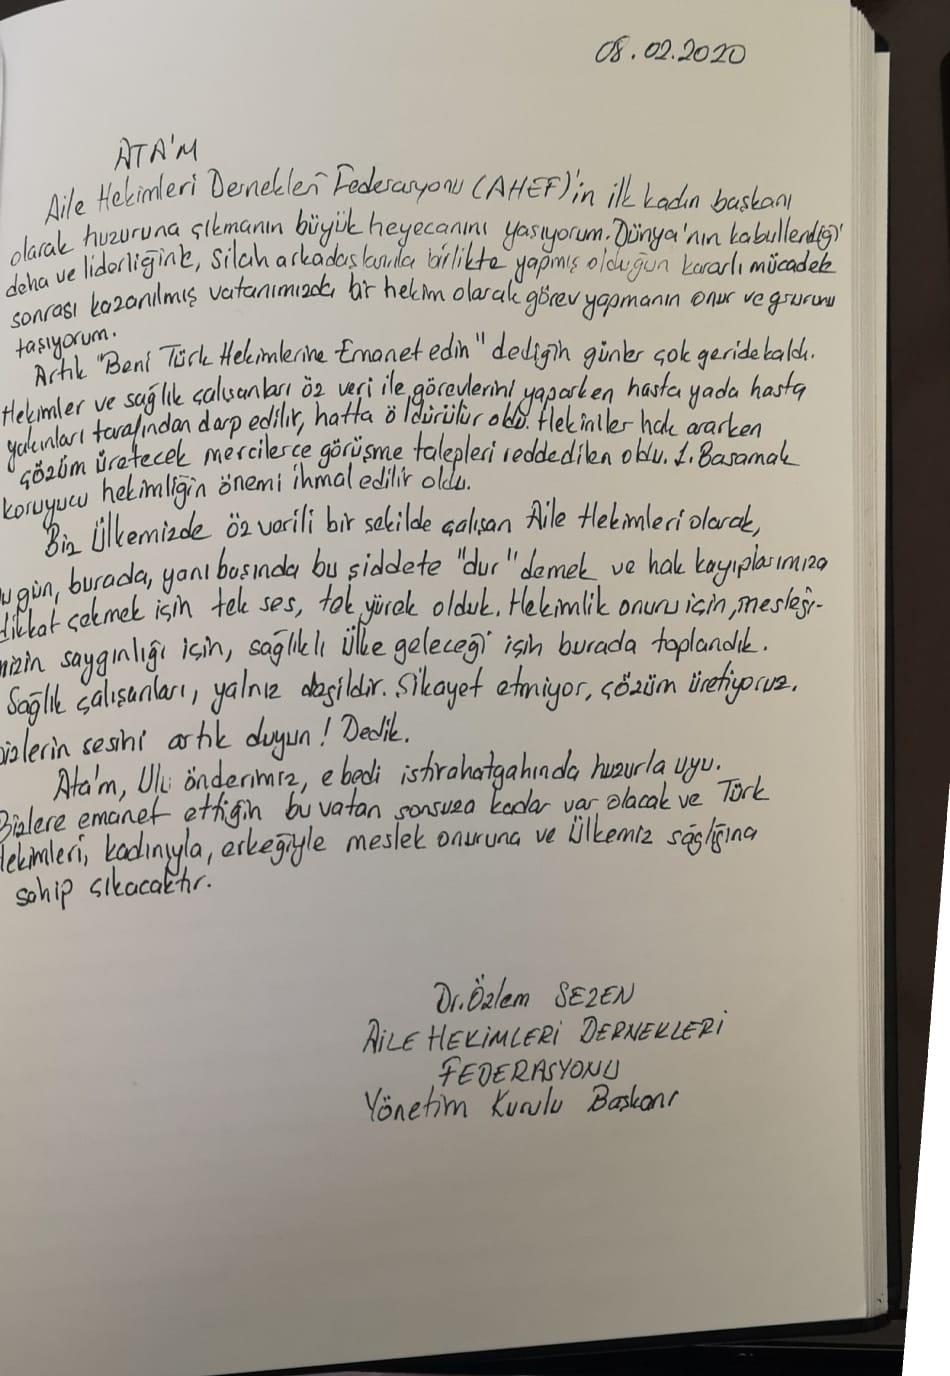 08.02.2020
ATA'M
Aile Hekimleri Dernekleri Federasyonu (AHEF)'in ilk kadın başkanı
olarak huzuruna çıkmanın büyük heyecanını yaşıyorum. Dünya'nın kabullendiği
deha ve liderliğinle, silah arkadaşlarınla birlikte yapmış olduğun kararlı mücadele
sonrası kazanılmış vatanımızda bir hekim olarak görev yapmanın onur ve gururunu
taşıyorum.
Artık "Beni Türk Hekimlerine Emanet edin" dediğin günler çok geride kaldı.
Hekimler ve sağlık çalışanları öz veri ile görevlerini yaparken hasta yada hasta
yakınları tarafından darp edilir, hatta öldürülür oldu. Hekimler hak ararken
çözüm üretecek mercilerce görüşme talepleri reddedilen oldu. 1. Basamak
koruyucu hekimliğin önemi ihmal edilir oldu.
Biz Ülkemizde öz verili bir şekilde çalışan Aile Hekimleri olarak,
ugün, burada, yanı başında bu şiddete "dur" demek ve hak kayıplarımıza
dikkat çekmek için tek ses, tek yürek olduk. Hekimlik onuru için, mesleği-
mizin saygınlığı için, sağlıklı ülke geleceği için burada toplandık.
Sağlık çalışanları, yalnız değildir. Şikayet etmiyor, çözüm üretiyoruz.
izlerin sesini artık duyun! Dedik.
Ata'm, Ulu önderimiz, ebedi istirahatgahında huzurla uyu.
Bizlere emanet ettiğin bu vatan sonsuza kadar var olacak ve Türk
Hekimleri, kadınıyla, erkeğiyle meslek onuruna ve Ülkemiz sağlığına
sahip çıkacaktır.
Dr. Özlem SEZEN
AİLE HEKİMLERİ DERNEKLERİ
FEDERASYONU
Yönetim Kurulu Başkanı